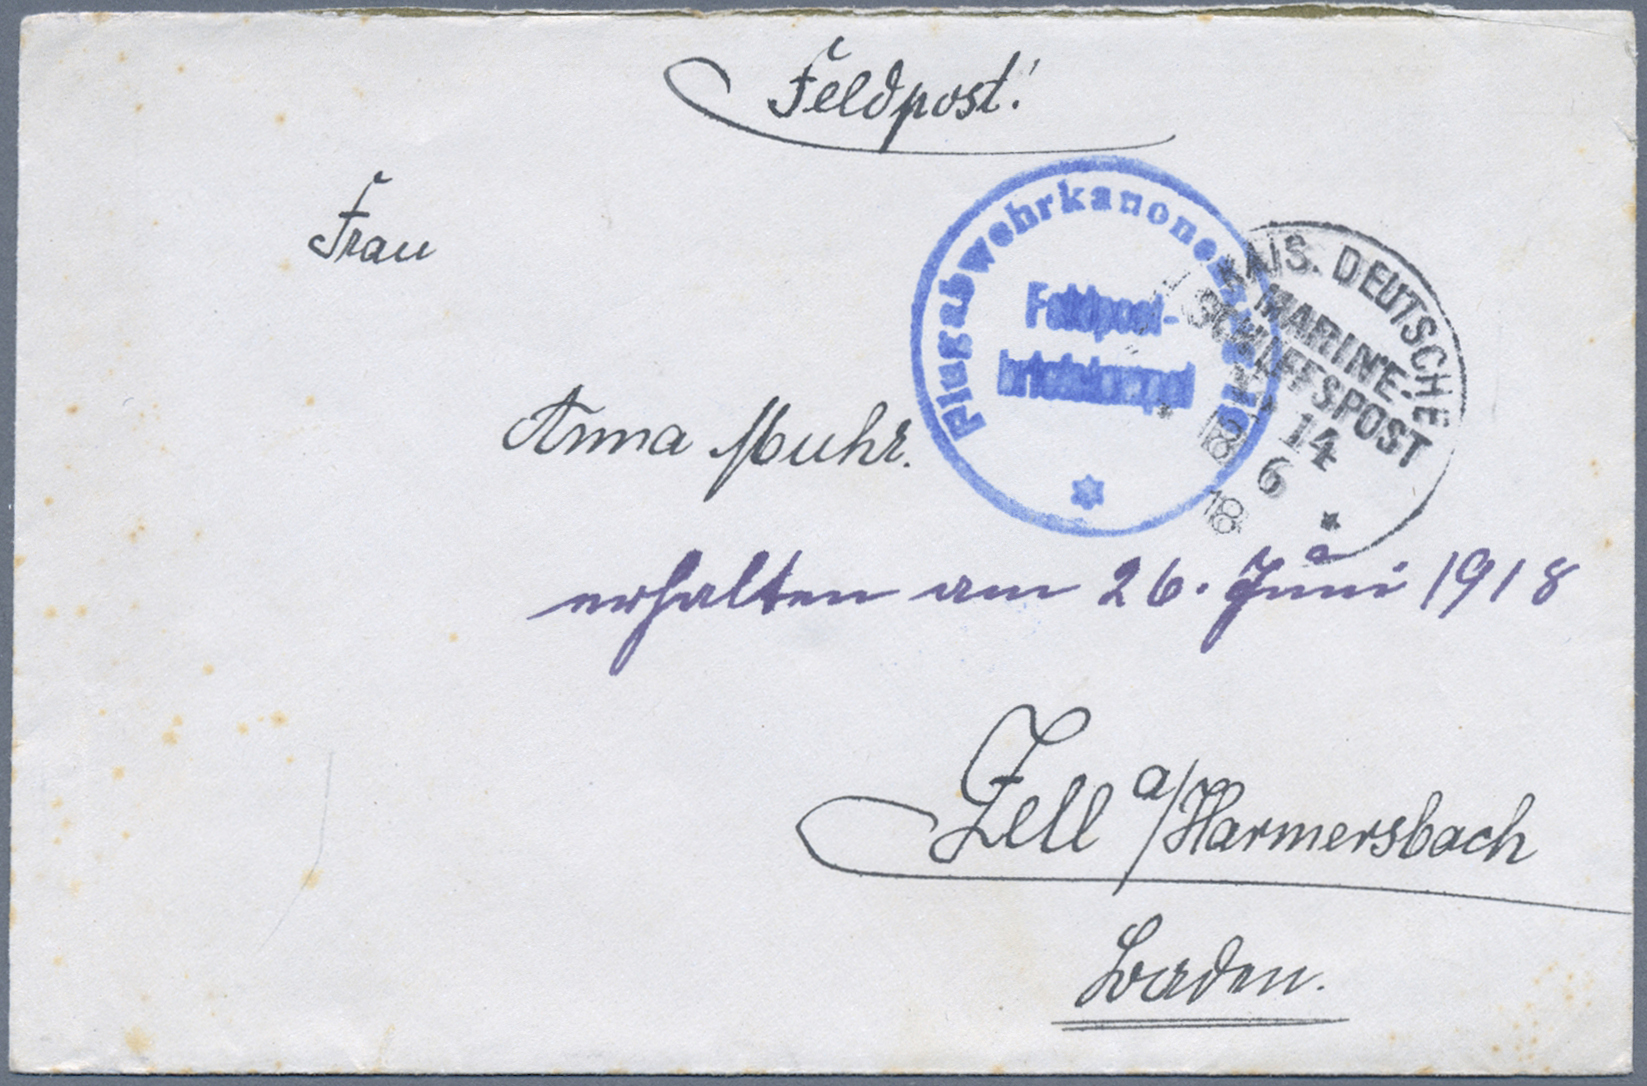 Feldpost!
Frau
Flugabwehrkanonen
Feldpost-
briefstempel
KAIS. DEUTSCHE
MARINE-
SCHIFFSPOST
14
6
18
18
Anna Muhr.
erhalten am 26. Juni 1918
Zell a/Harmersbach
Baden.